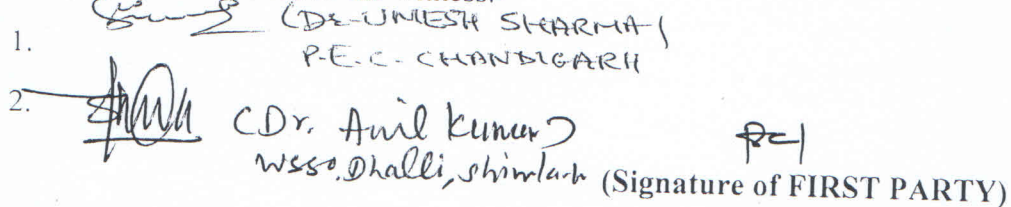 1. (Dr. UMESH SHARMA)
P.E.C. CHANDIGARH
2. (Dr. Anil Kumar)
WSSO, Dhalli, Shimla
(Signature of FIRST PARTY)